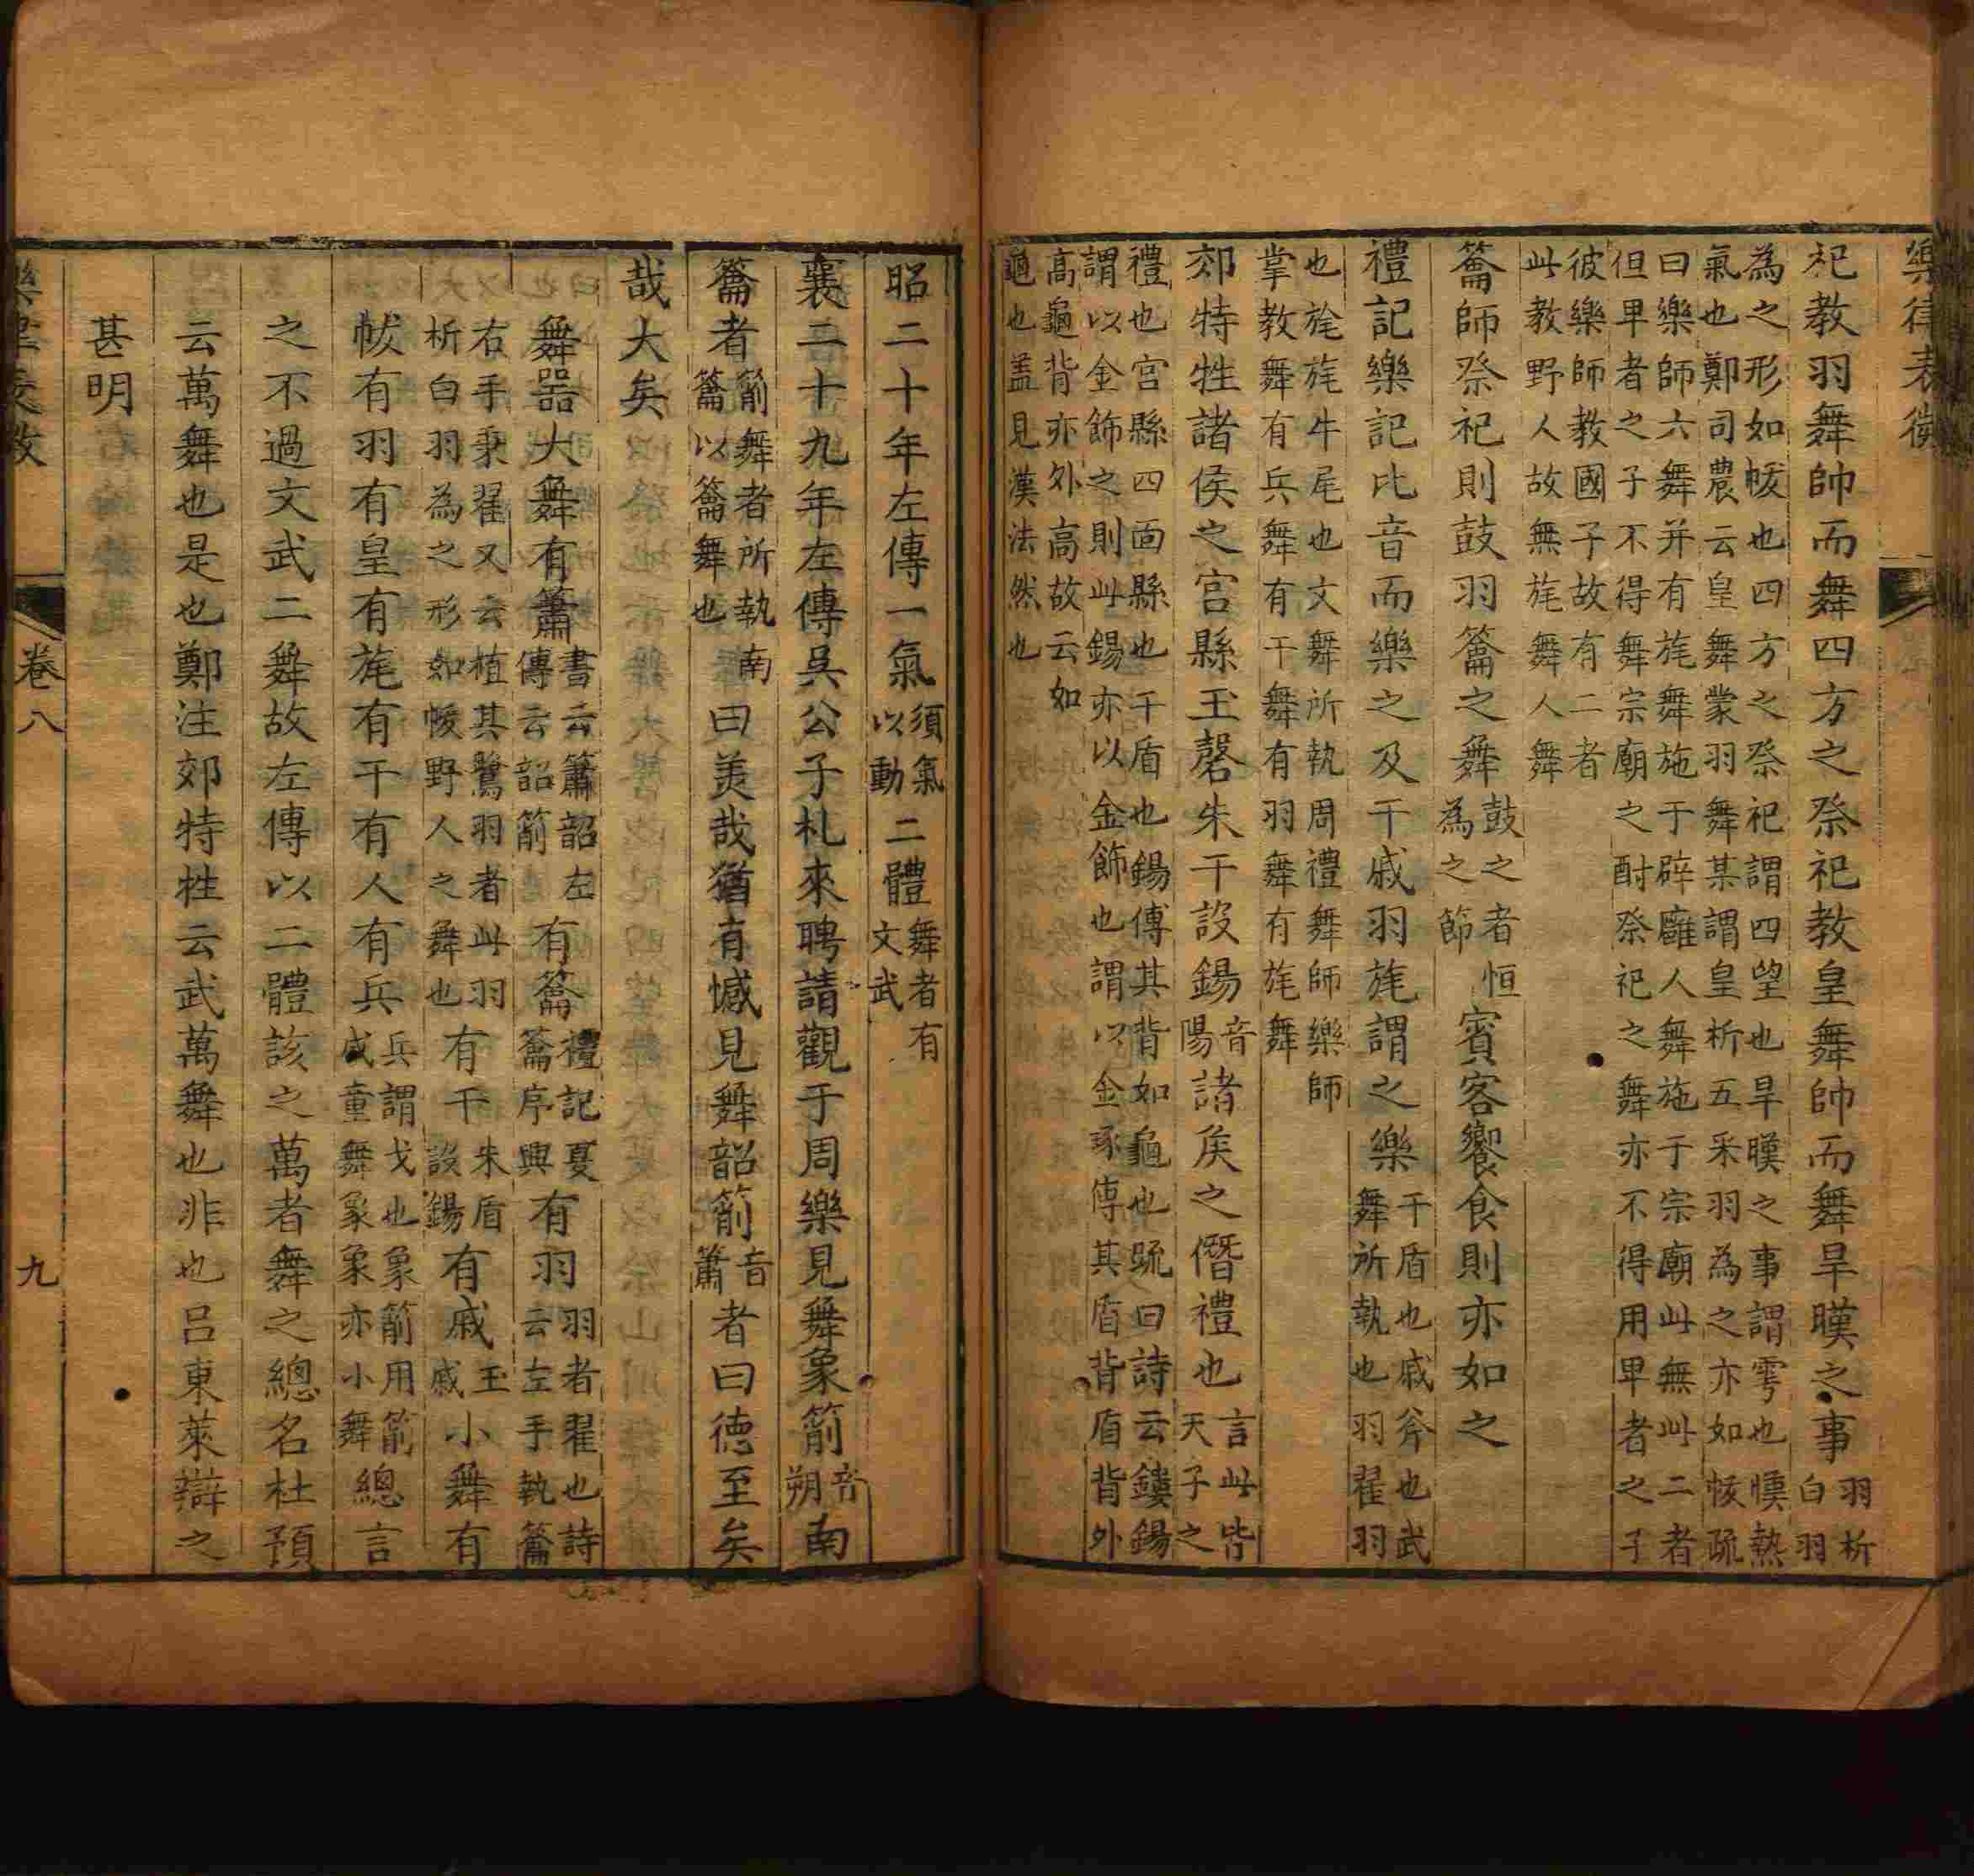 樂律表微
祀教羽舞帥而舞四方之祭祀教皇舞帥而舞旱暵之事羽析白羽
為之形如帗也四方之祭祀謂四望也旱暵之事謂雩也暵熱
氣也鄭司農云皇舞蒙羽舞某謂皇析五采羽為之亦如帗疏
曰樂師六舞并有旄舞施于辟廱人舞施于宗廟此無此二者
但卑者之子不得舞宗廟之酎祭祀之舞亦不得用卑者之子
彼樂師教國子故有二者
此教野人故無旄舞人舞
籥師祭祀則鼓羽籥之舞鼓之者恒為之節賓客饗食則亦如之
禮記樂記比音而樂之及干戚羽旄謂之樂干盾也戚斧也武舞所執也羽翟羽
也旄旄牛尾也文舞所執周禮舞師樂師
掌教舞有兵舞有干舞有羽舞有旄舞
郊特牲諸侯之宮縣玉磬朱干設錫音陽諸矦之僭禮也言此皆天子之
禮也宮縣四面縣也干盾也錫傅其背如龜也疏曰詩云鏤錫
謂以金飾之則此錫亦以金飾也謂以金琢傅其盾背盾背外
高龜背亦外高故云如
龜也盖見漢法然也
昭二十年左傳一氣須氣以動二體舞者有文武
襄二十九年左傳吳公子札來聘請觀于周樂見舞象箾音朔南
籥者箾舞者所執南籥以籥舞也曰美哉猶有憾見舞韶箾音簫者曰德至矣
哉大矣
舞器大舞有簫書云簫韶左傳云韶箾有籥禮記夏籥序興有羽羽者翟也詩云左手執籥
右手秉翟又云植其鷺羽者此羽析白羽為之形如帗野人之舞也有干朱盾設錫有戚玉戚小舞有
帗有羽有皇有旄有干有人有兵兵謂戈也象箾用箾成童舞象象亦小舞總言
之不過文武二舞故左傳以二體該之萬者舞之總名杜預
云萬舞也是也鄭注郊特牲云武萬舞也非也呂東萊辯之
甚明
卷八
九